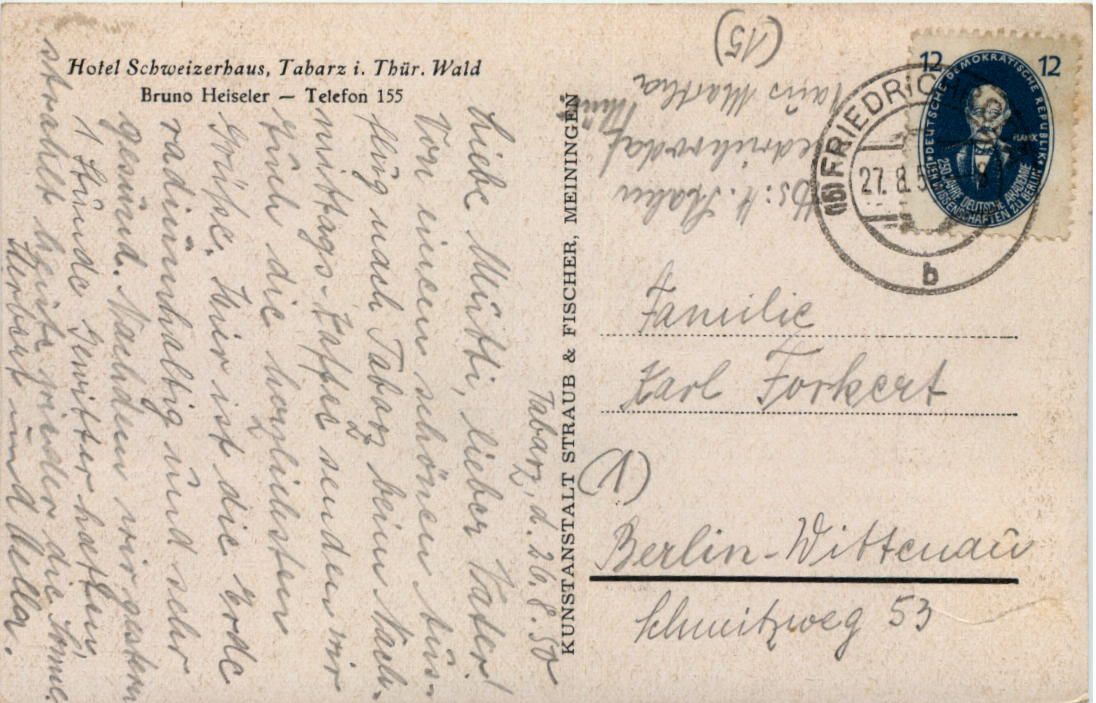 Hotel Schweizerhaus, Tabarz i. Thür. Wald
Bruno Heiseler — Telefon 155
Tabarz, d. 26.8.50
Liebe Mutti, lieber Vater!
Von einem schönen Aus-
flug nach Tabarz beim Nach-
mittags-Kaffee senden wir
Euch die herzlichsten
Grüße. Hier ist die Erde
radiumhaltig und sehr
gesund. Nachdem wir gestern
1 Stunde Gewitter hatten,
strahlt heute wieder die Sonne.
Herbert und Hella.
KUNSTANSTALT STRAUB & FISCHER, MEININGEN
(15)
Haus Martha
Friedrichroda
Thür.
Abs: H. Hahn
12 12
DEUTSCHE DEMOKRATISCHE REPUBLIK
250 JAHRE DEUTSCHE AKADEMIE
DER WISSENSCHAFTEN ZU BERLIN
(15) FRIEDRICH
27. 8. 5
b
Familie
Karl Forkert
(1)
Berlin-Wittenau
Schmitzweg 53